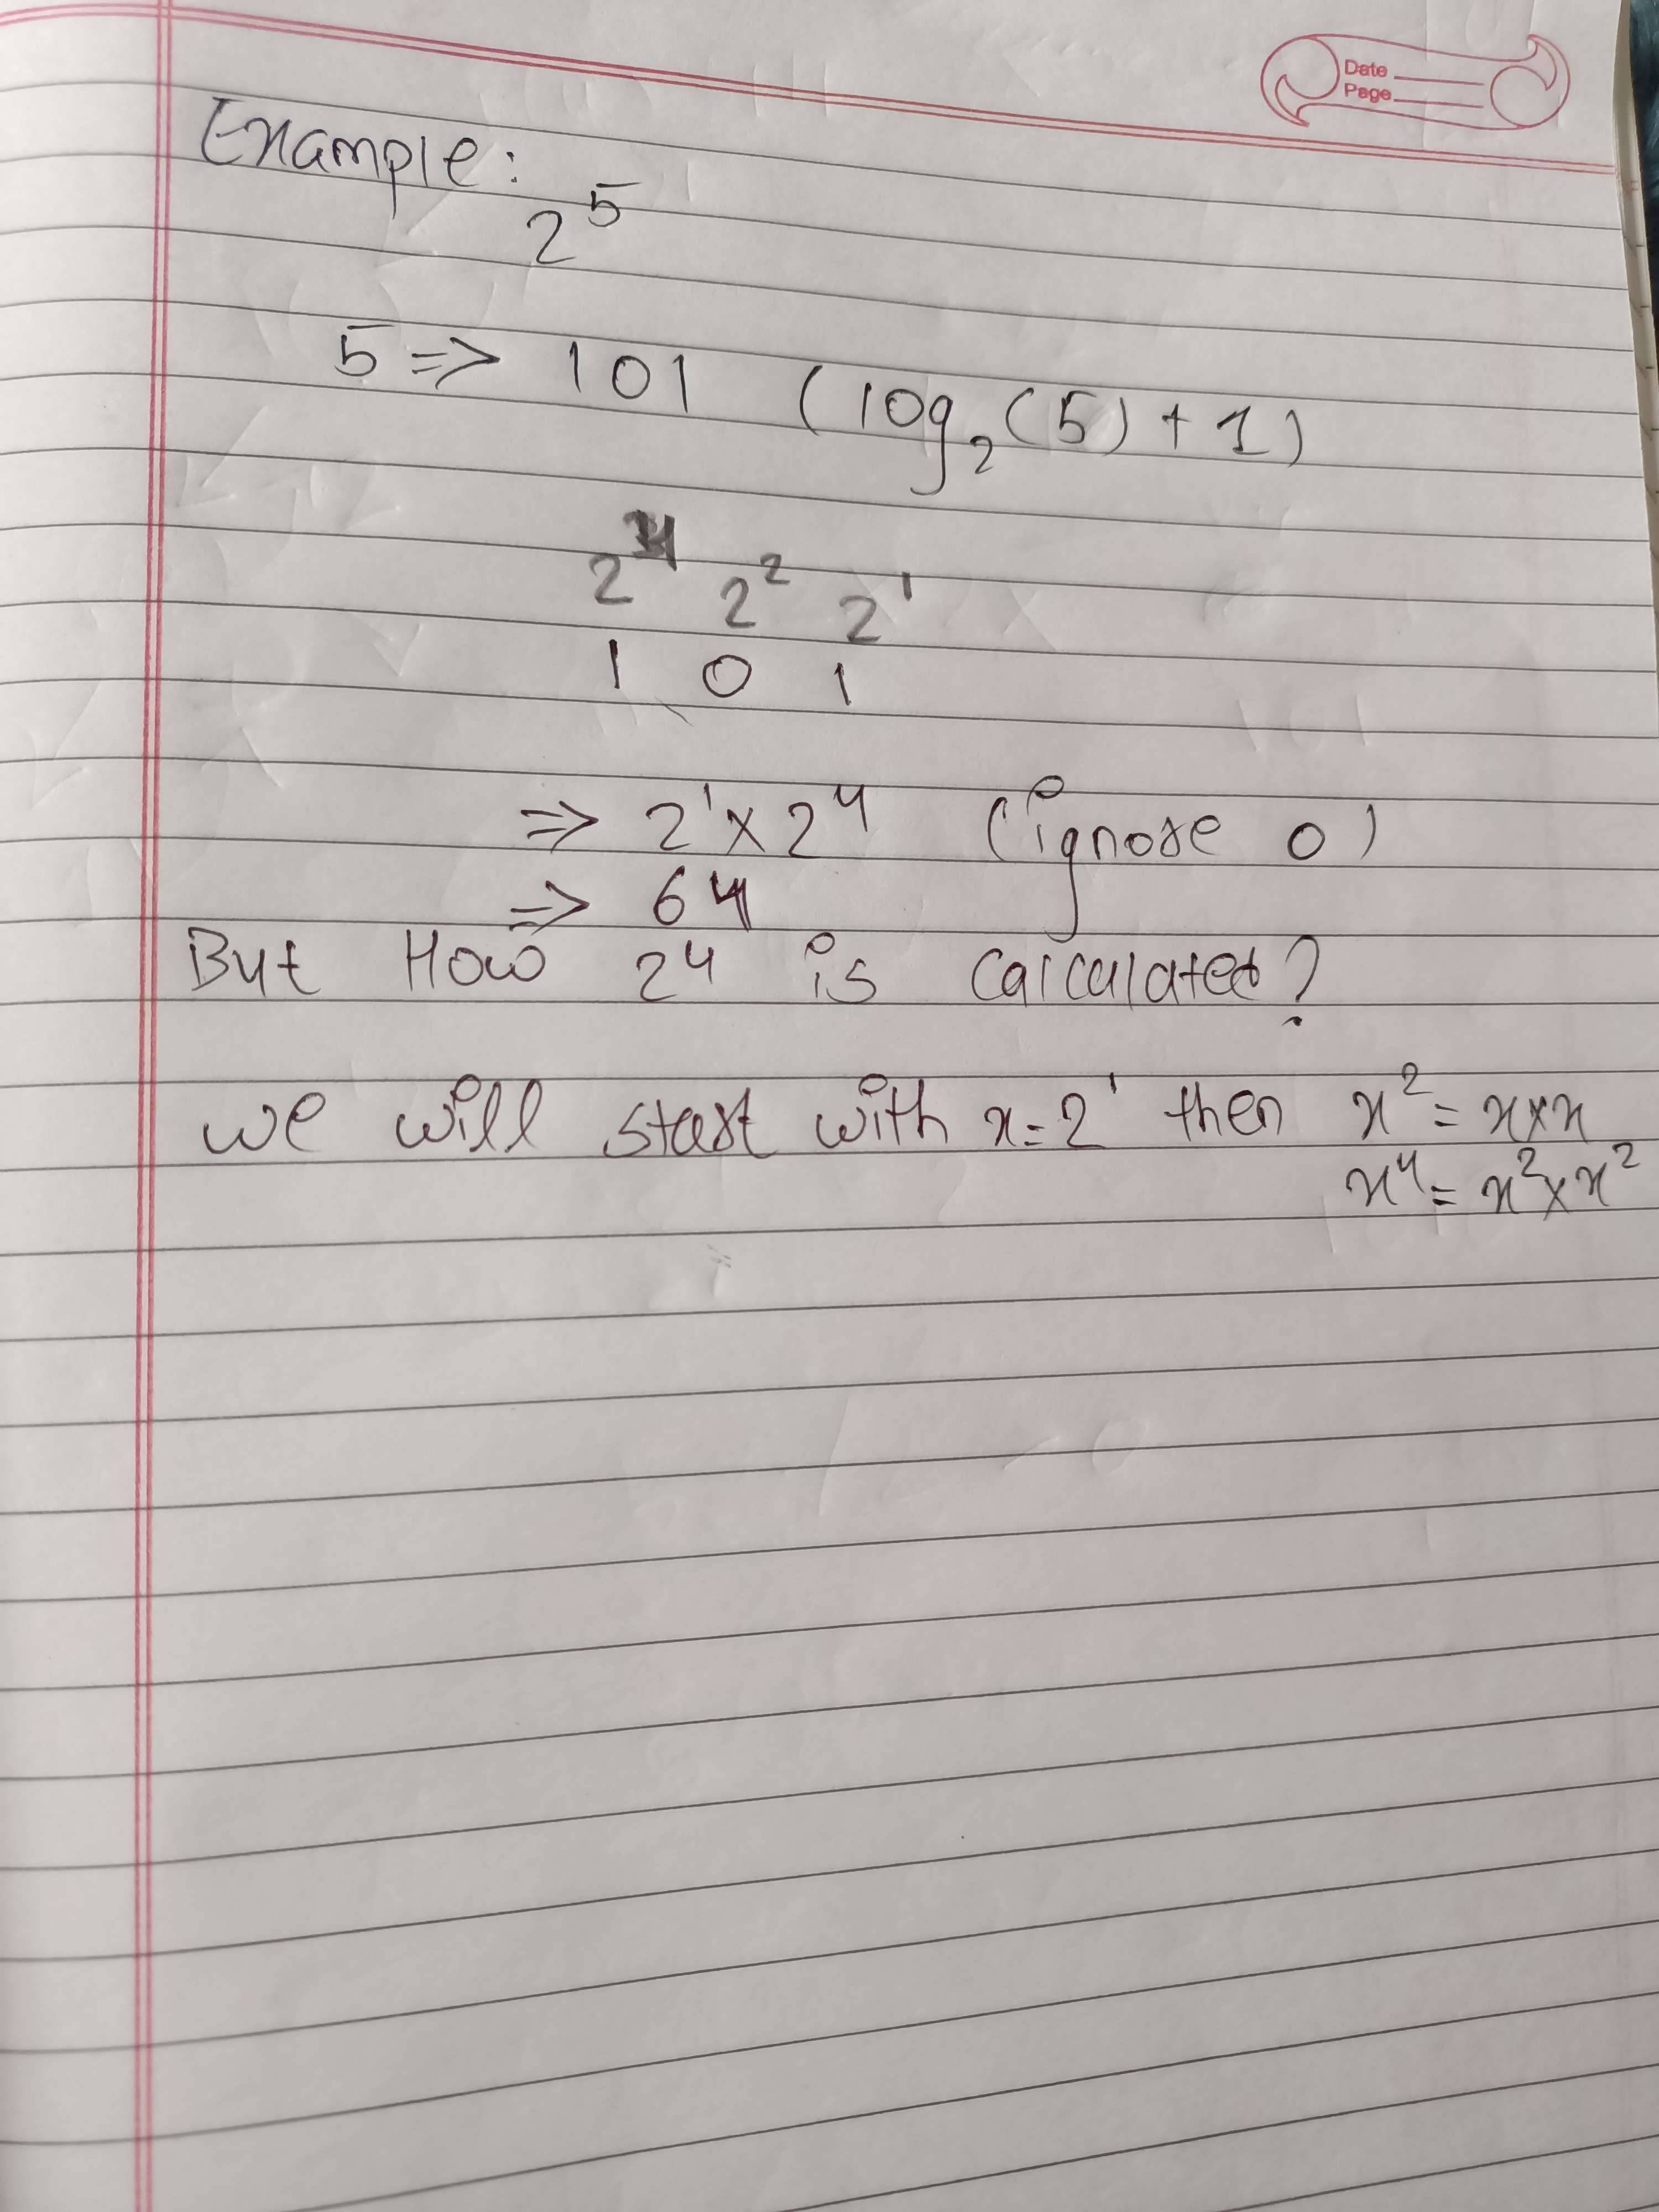 Date
Page
Example:
2⁵
5 => 101 (log₂(5)+1)
2⁴ 2² 2¹
1 0 1
=> 2¹x2⁴ (ignore 0)
=> 64
But How 2⁴ is calculated?
we will start with x=2¹ then x²=x×x
x⁴=x²×x²